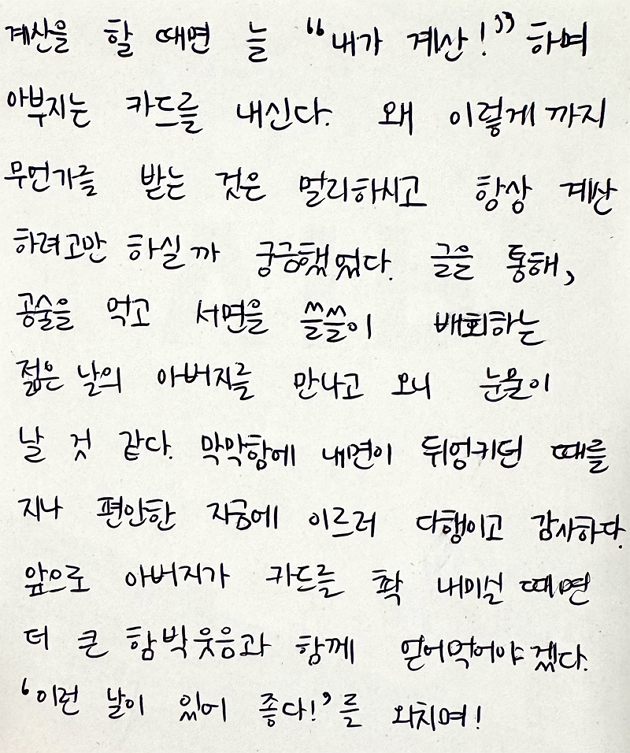 계산을 할 때면 늘 "내가 계산!" 하며
아부지는 카드를 내신다. 왜 이렇게 까지
무언가를 받는 것은 멀리하시고 항상 계산
하려고만 하실까 궁금했었다. 글을 통해,
공술을 먹고 서면을 쓸쓸이 배회하는
젊은 날의 아버지를 만나고 오니 눈물이
날 것 같다. 막막함에 내면이 뒤엉키던 때를
지나 편안한 지금에 이르러 다행이고 감사하다.
앞으로 아버지가 카드를 촥 내미실 때면
더 큰 함박웃음과 함께 얻어먹어야겠다.
'이런 날이 있어 좋다!'를 외치며!